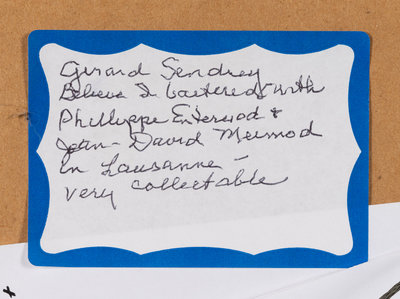 Gerard Sendrey
Believe I bartered with
Phillippe Eternod &
Jean-David Mermod
in Lausanne –
very collectable